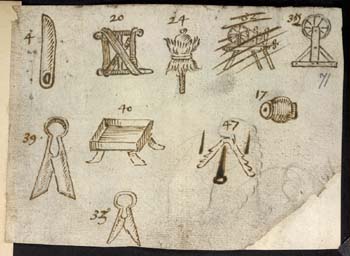 4 20 24 38
71
17
39 40 47
33